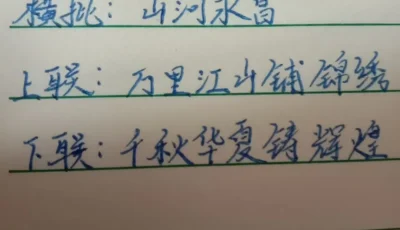 横批：山河永昌
上联：万里江山铺锦绣
下联：千秋华夏铸辉煌